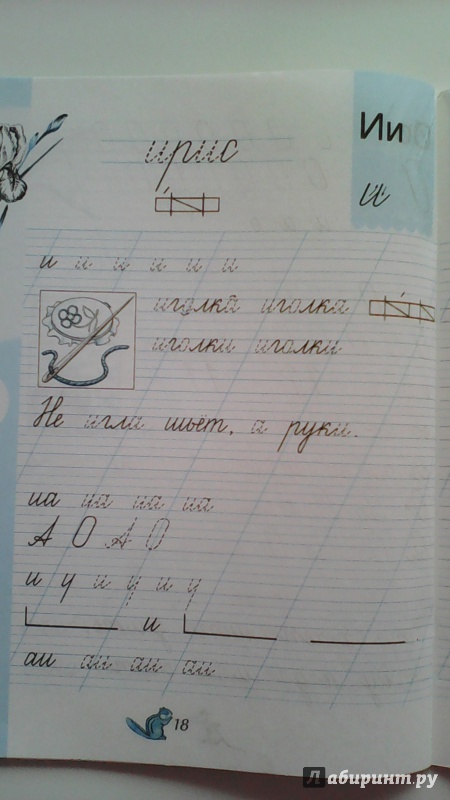 Ии
ирис
и
и и и и и и
иголка иголка
иголки иголки
Не игла шьёт, а руки.
иа иа иа иа
А О А О
и у и у и у
и
аи аи аи аи
18
Лабиринт.ру